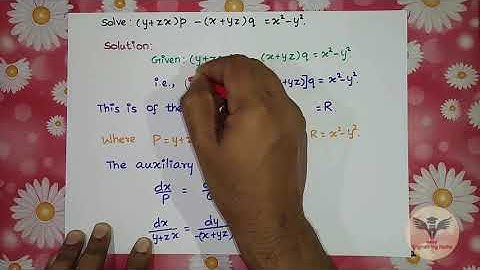 Solve: (y+zx)p -(x+yz)q = x²-y².
Solution:
Given: (y+z (x+yz)q = x²-y²
i.e., ( +yz)]q = x²-y².
This is of the = R.
Where P=y+z R=x²-y².
The auxiliary
dx/P =
dx/y+zx = dy/-(x+yz)